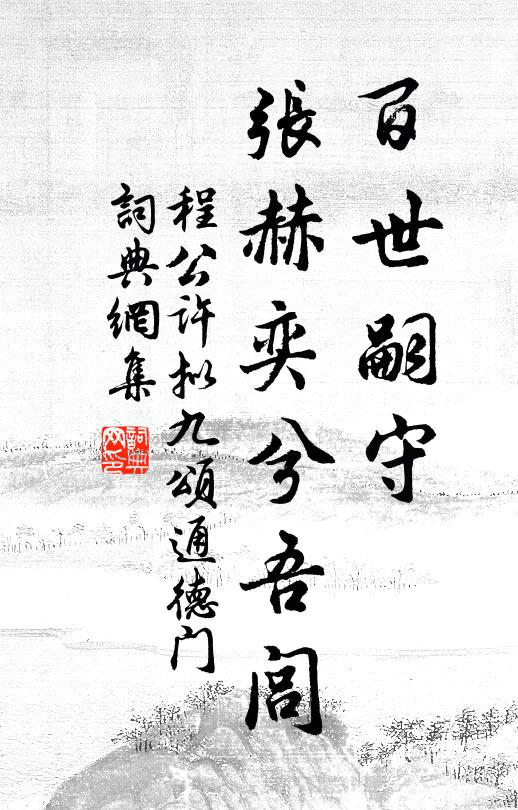 百世嗣守
張赫奕兮吾閭
程公许拟九頌通德门
詞典網集